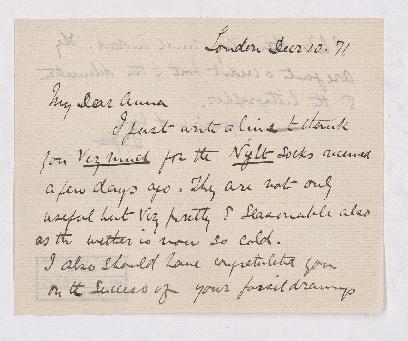 London Decr 10. 71
My Dear Anna
I just write a line to thank
you Very much for the Nyht Socks received
a few days ago. They are not only
useful but Very pretty & Seasonable also
as the wether is now so cold.
I also should have congratulated you
on the Success of your fossil drawings